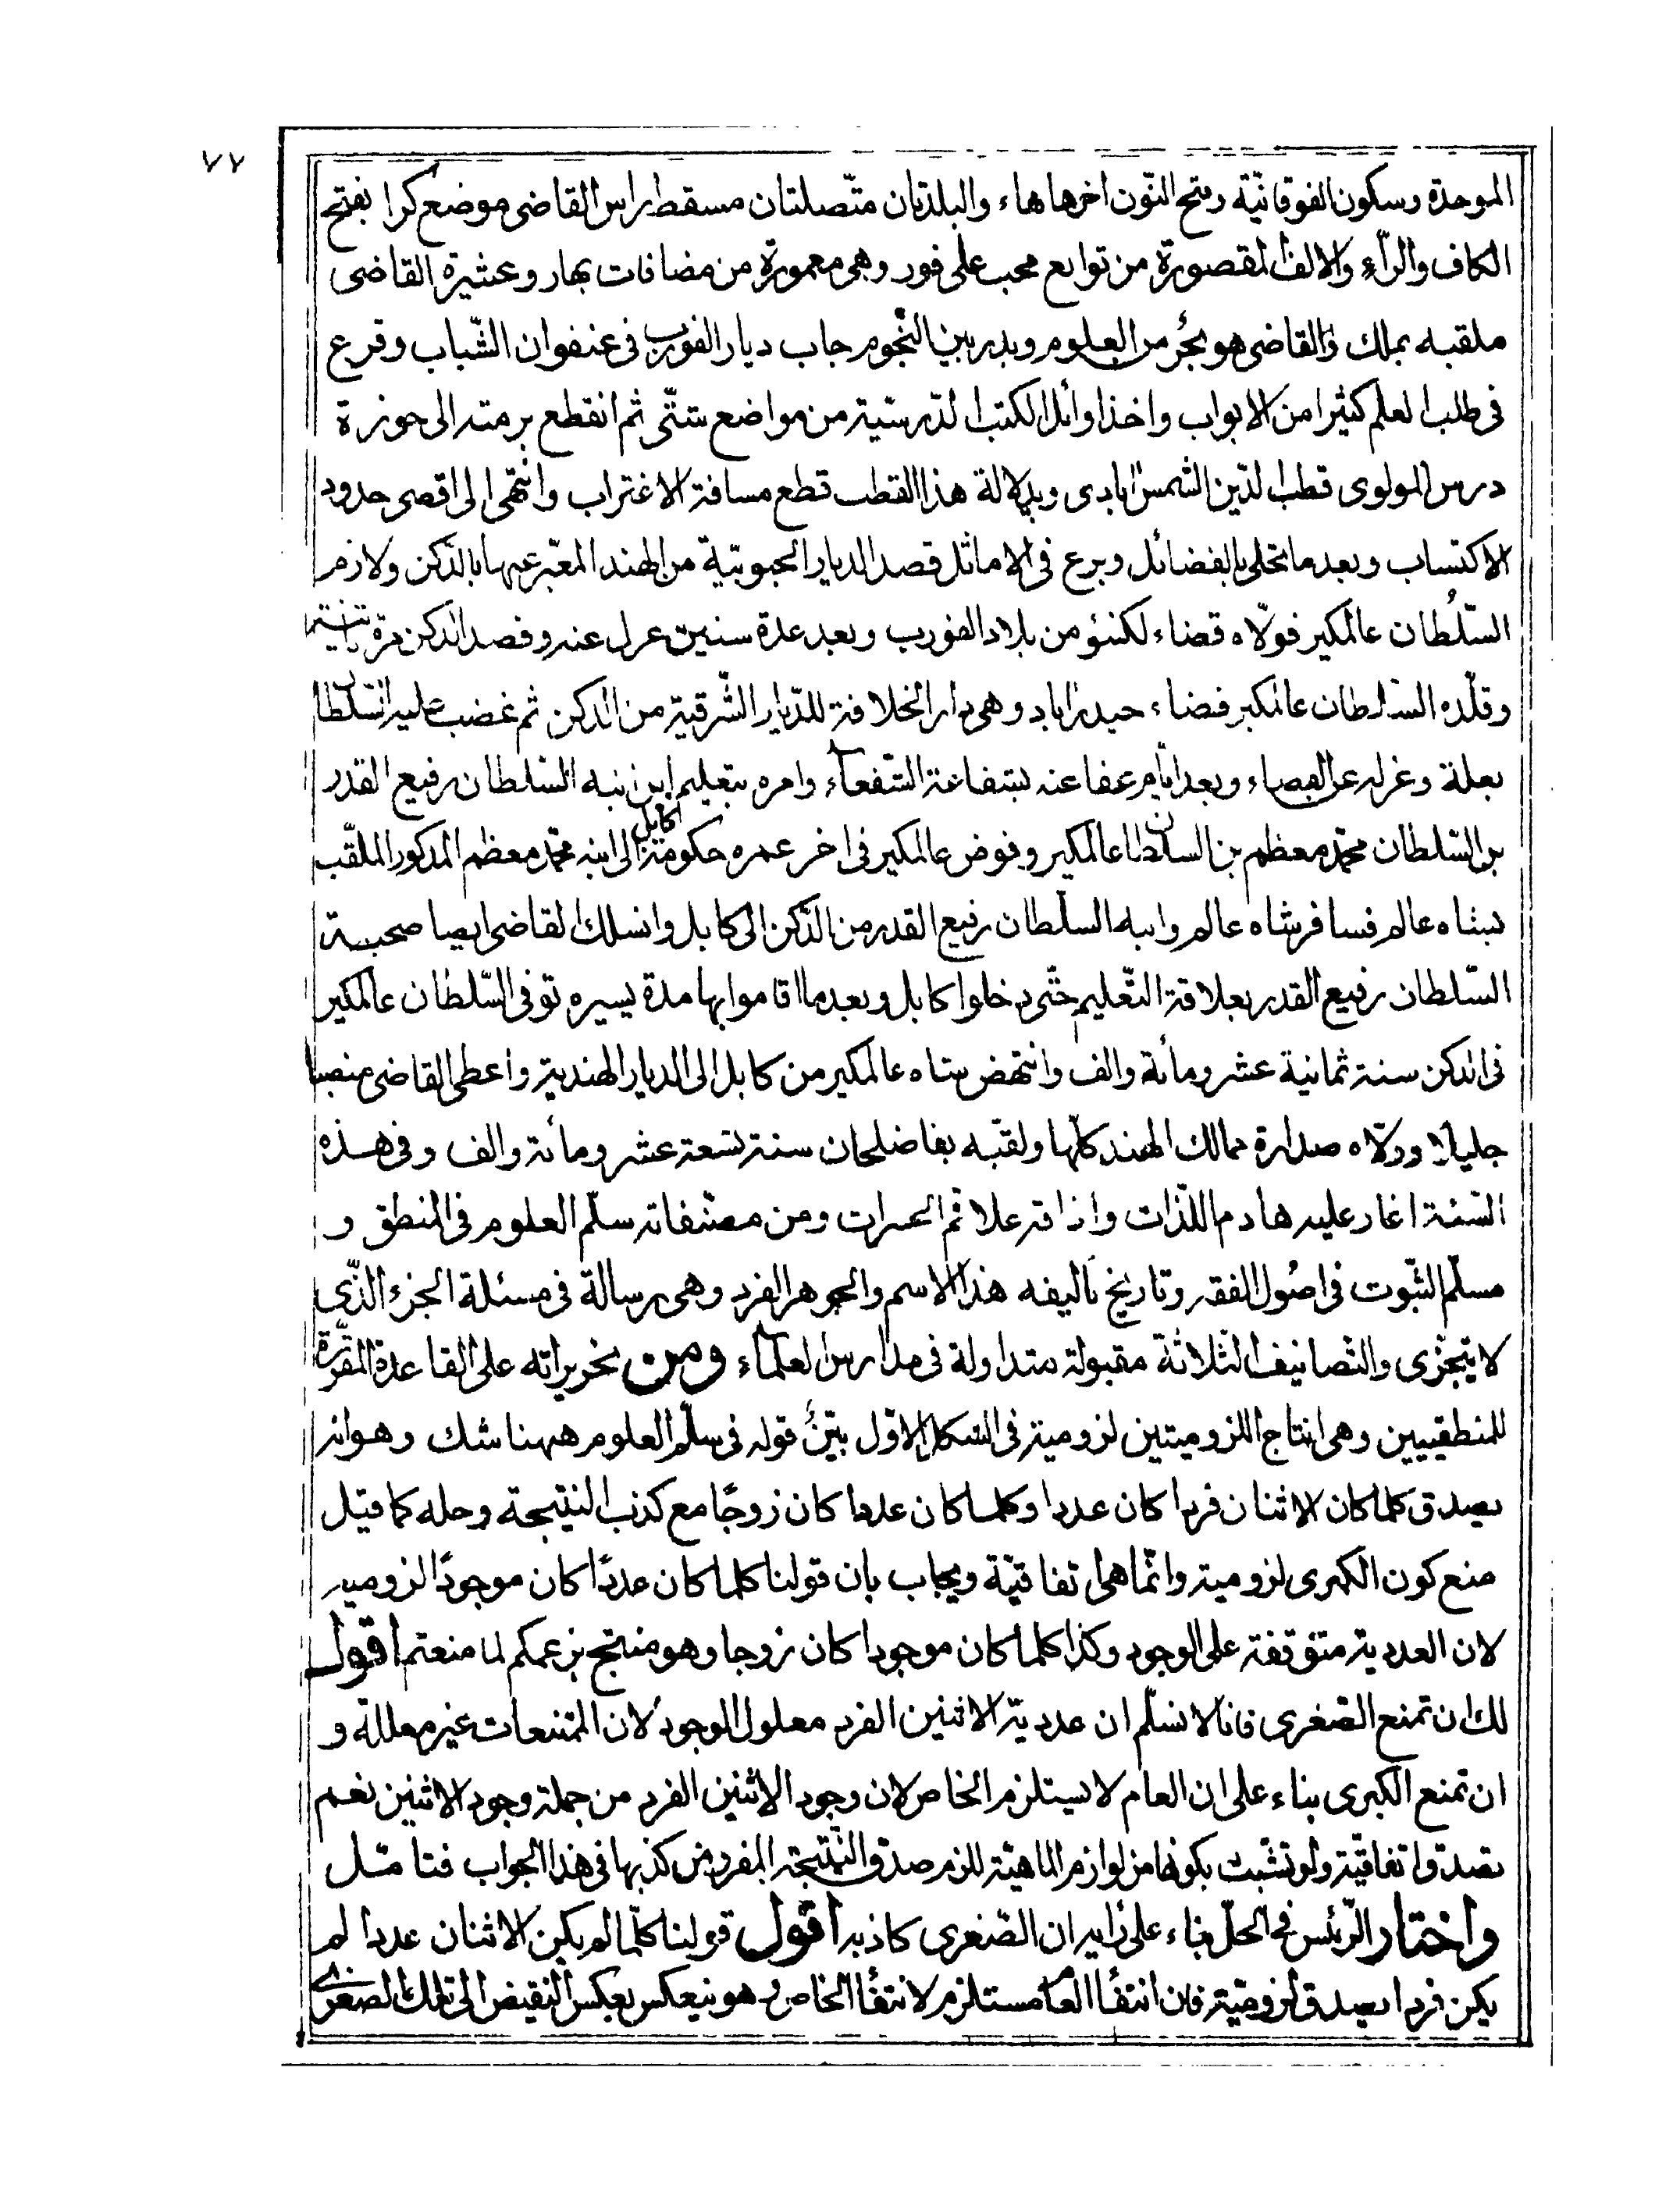 ٧٧
الموحدة وسكون الفوقانيّة وفتح النّون اخرها هاء والبلدتان متّصلتان مسقط راس القاضى موضع كرا بفتح
الكاف والرّاء والالف المقصورة من توابع محب على فور وهى معمورة من مضافات بهار وعشيرة القاضى
ملقبه بملك والقاضى هو بحر من العلوم وبدر بين النّجوم جاب ديار الفورب فى عنفوان الشّباب وقرع
فى طلب العلم كثيرا من الابواب واخذ اوائل الكتب الدّرسيّة من مواضع شتّى ثم انقطع برمته الى حوزة
درس المولوى قطب الدّين الشمس ابادى وبدلالة هذا القطب قطع مسافة الاغتراب وانتهى الى اقصى حدود
الاكتساب وبعد ما تحلى بالفضائل وبرع فى الاماثل قصد الديار الجنوبيّة من الهند المعبّر عنها بالدّكن ولازم
السّلطان عالمكير فولّاه قضاء لكنئو من بلاد الفورب وبعد عدة سنين عزل عنه وقصد الدكن مرة ثانية
وقلّده السّلطان عالمكير قضاء حيدراباد وهى دار الخلافة للدّيار الشّرقية من الدكن ثم غضب عليه السّلطان
بعلة وعزله عن القضاء وبعد ايّام عفا عنه بشفاعة الشّفعاء وامره بتعليم ابن ابنه السّلطان رفيع القدر
بن السّلطان محمّد معظم بن السلطان عالمكير وفوض عالمكير فى اخر عمره حكومة كابل الى ابنه محمّد معظم المذكور الملقّب
بشاه عالم فسافر شاه عالم وابنه السلّطان رفيع القدر من الدّكن الى كابل وانسلك القاضى ايضا صحبة
السّلطان رفيع القدر بعلاقة التّعليم حتّى دخلوا كابل وبعد ما اقاموا بها مدة يسيره توفى السّلطان عالمكير
فى الدكن سنة ثمانية عشر ومائة والف وانتهض شاه عالمكير من كابل الى الديار الهندية واعطى القاضى منصبا
جليلا وولّاه صدارة ممالك الهند كلّها ولقّبه بفاضلخان سنة تسعة عشر ومائة والف وفى هذه
السّنة اغار عليه هادم اللّذات واذاقه علاقم الحسرات ومن مصنّفاته سلّم العلوم فى المنطق و
مسلّم الثّبوت فى اصُول الفقه وتاريخ تأليفه هذا الاسم والجوهر الفرد وهى رسالة فى مسئلة الجزء الذّى
لا يتجزّى والتّصانيف الثّلاثة مقبولة متداولة فى مدارس العلماء ومن تحريراته على القاعدة المقرّرة
للمنطقيين وهى انتاج اللزوميتين لزومية فى الشكل الاوّل بيّنٌ قوله فى سلّم العلوم ههنا شك وهو انه
يصدق كلما كان الاثنان فردا كان عددا وكلما كان عددا كان زوجًا مع كذب النتيجة وحله كما قيل
منع كون الكبرى لزومية وانّما هى اتفاقيّة ويجاب بان قولنا كلما كان عددًا كان موجودًا لزومية
لان العددية متوقفة على الوجود وكذا كلما كان موجودا كان زوجا وهو منتج بزعمكم لما منعتم اقول
لك ان تمنع الصّغرى فانا لا نسلّم ان عدديّة الاثنين الفرد معلول الوجود لان الممتنعات غير معللة و
ان تمنع الكبرى بناء على ان العام لا يستلزم الخاص لان وجود الاثنين الفرد من جملة وجود الاثنين نعم
تصدق اتفاقيّة ولو تشبث بكونها من لوازم الماهيّة للزم صدق النّتيجة المفروض كذبها فى هذا الجواب فتامّل
واختار الرّئيس فى الحلّ بناء على رايه ان الصّغرى كاذبه اقول قولنا كلّما لم يكن الاثنان عددا لم
يكن فردا يصدق لزوميّة فان انتفاء العام مستلزم لانتفاء الخاص وهو ينعكس بعكس النّقيض الى تلك الصغرى